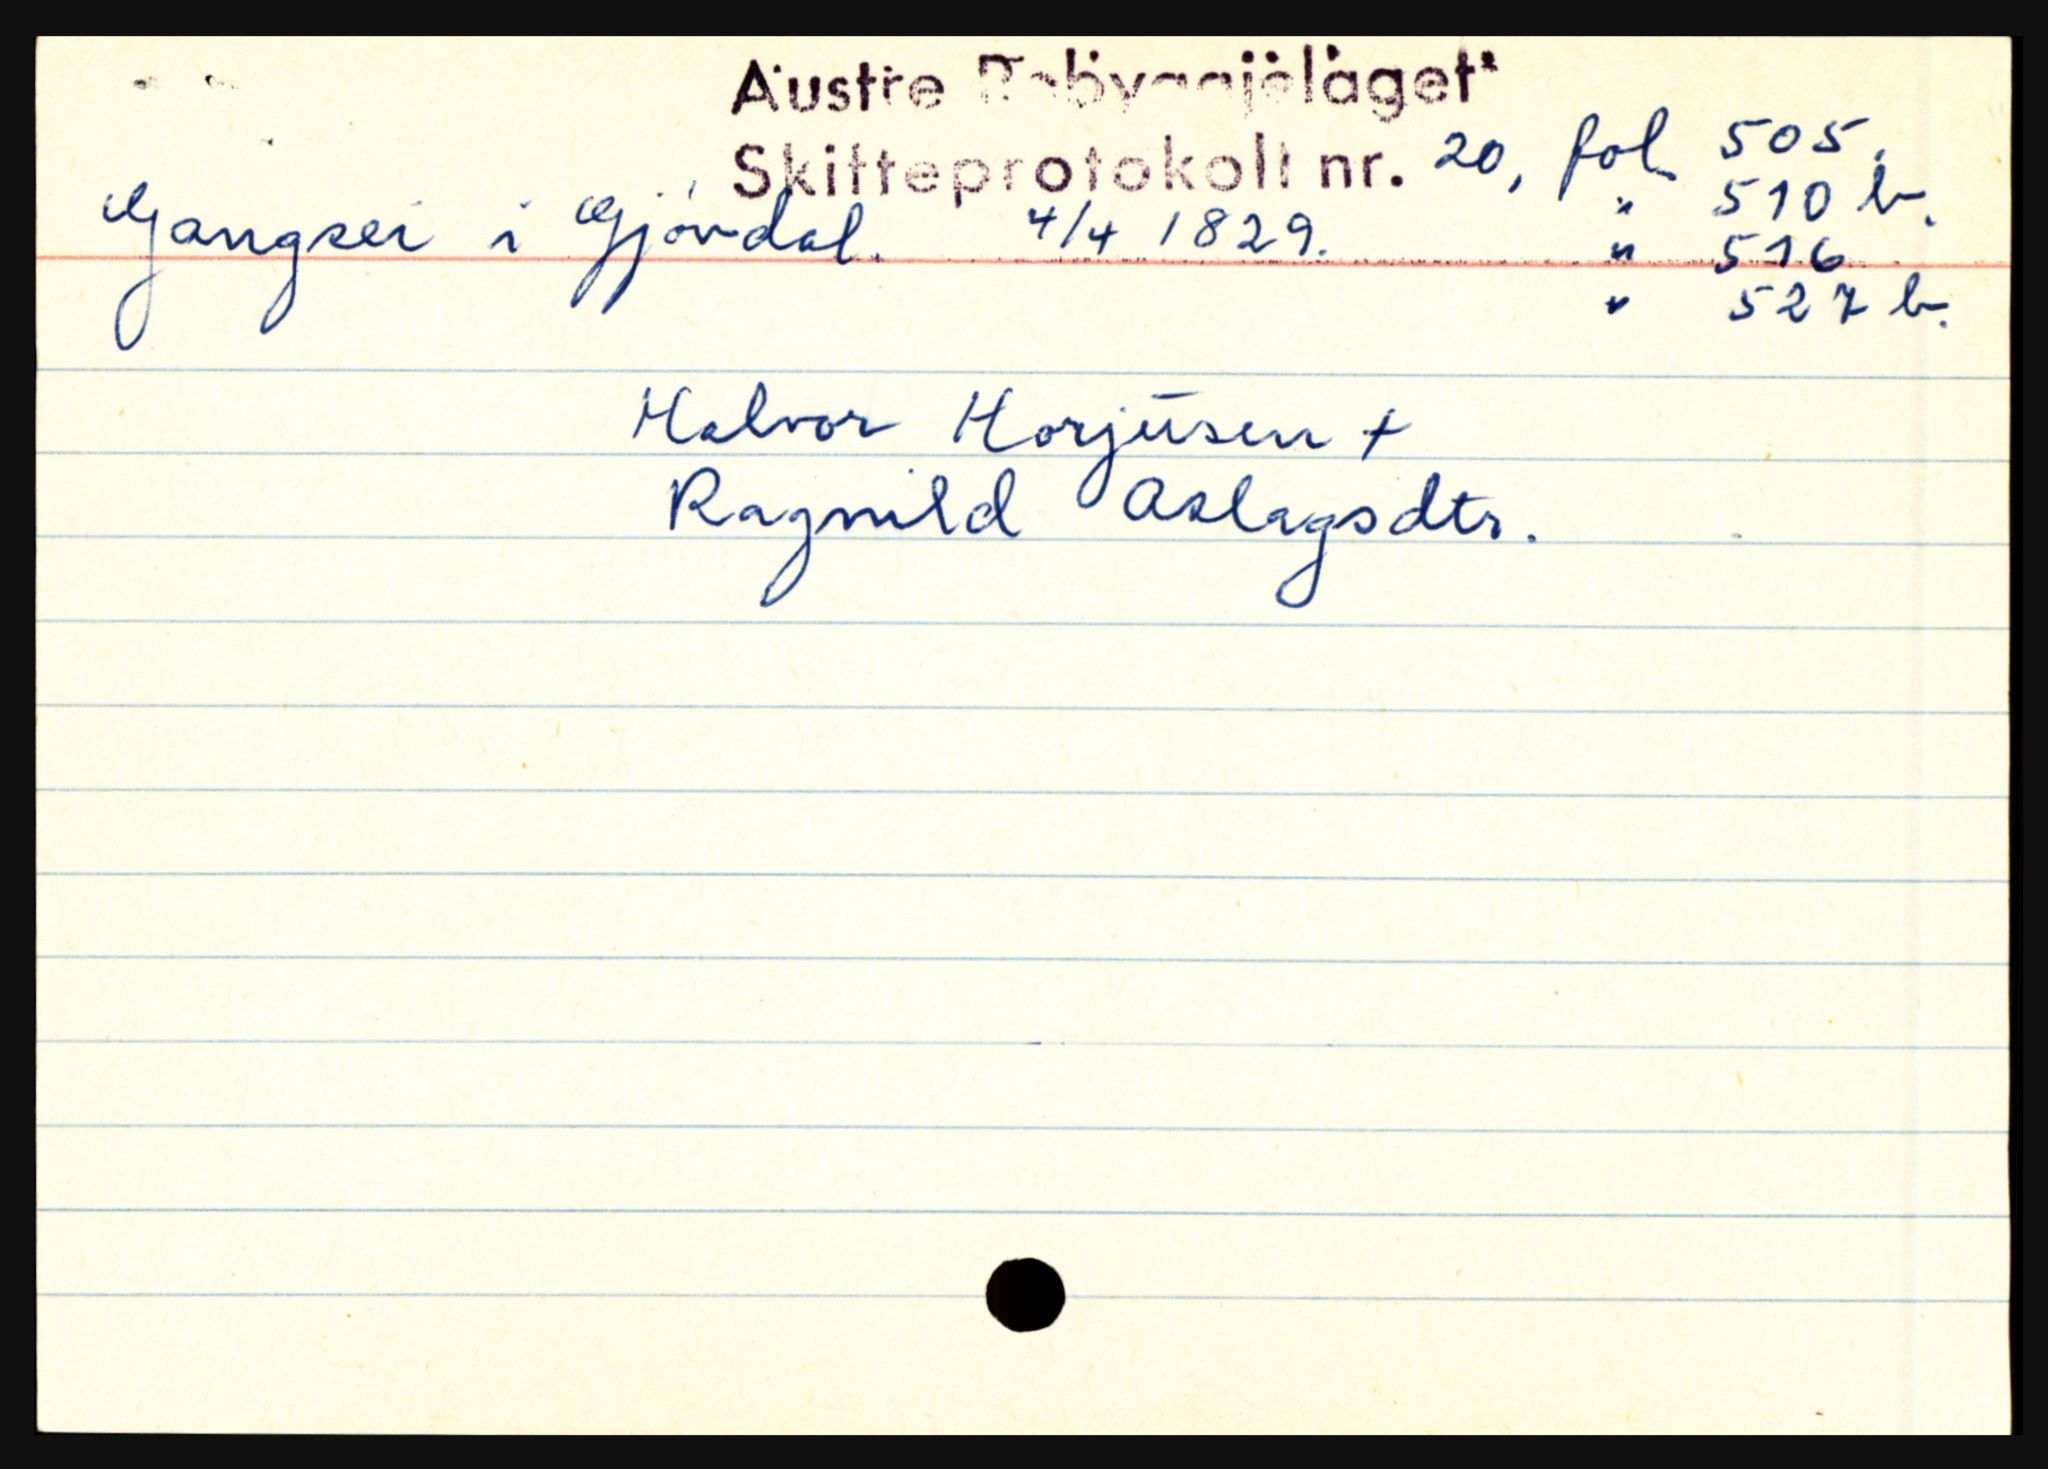 Austre Robyggjelaget
Skifteprotokoll nr. 20, fol. 505,
" 510 b.
Gangsei i Gjövdal. 4/4 1829.
" 516
" 527 b.
Halvor Horjusen +
Ragnild Aslagsdtr.